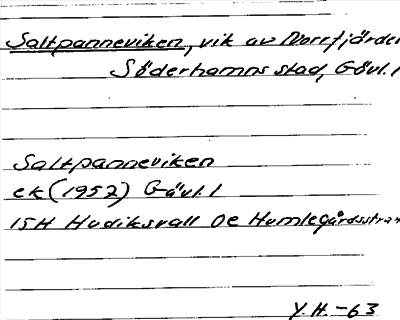 Saltpanneviken, vik av Norrfjärden
Söderhamns stad, Gävl. l
Saltpanneviken
ek (1952) Gävl. l
15H Hudiksvall 0e Humlegårdsstran
Y.H. -63